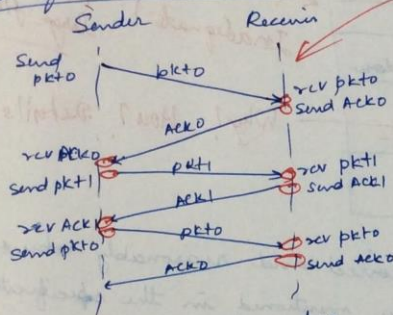 Sender Receiver
Send
pkt0
pkt0
rcv pkt0
send ACK0
ACK0
rcv ACK0
send pkt1
pkt1
rcv pkt1
send ACK1
ACK1
rcv ACK1
send pkt0
pkt0
rcv pkt0
send ACK0
ACK0